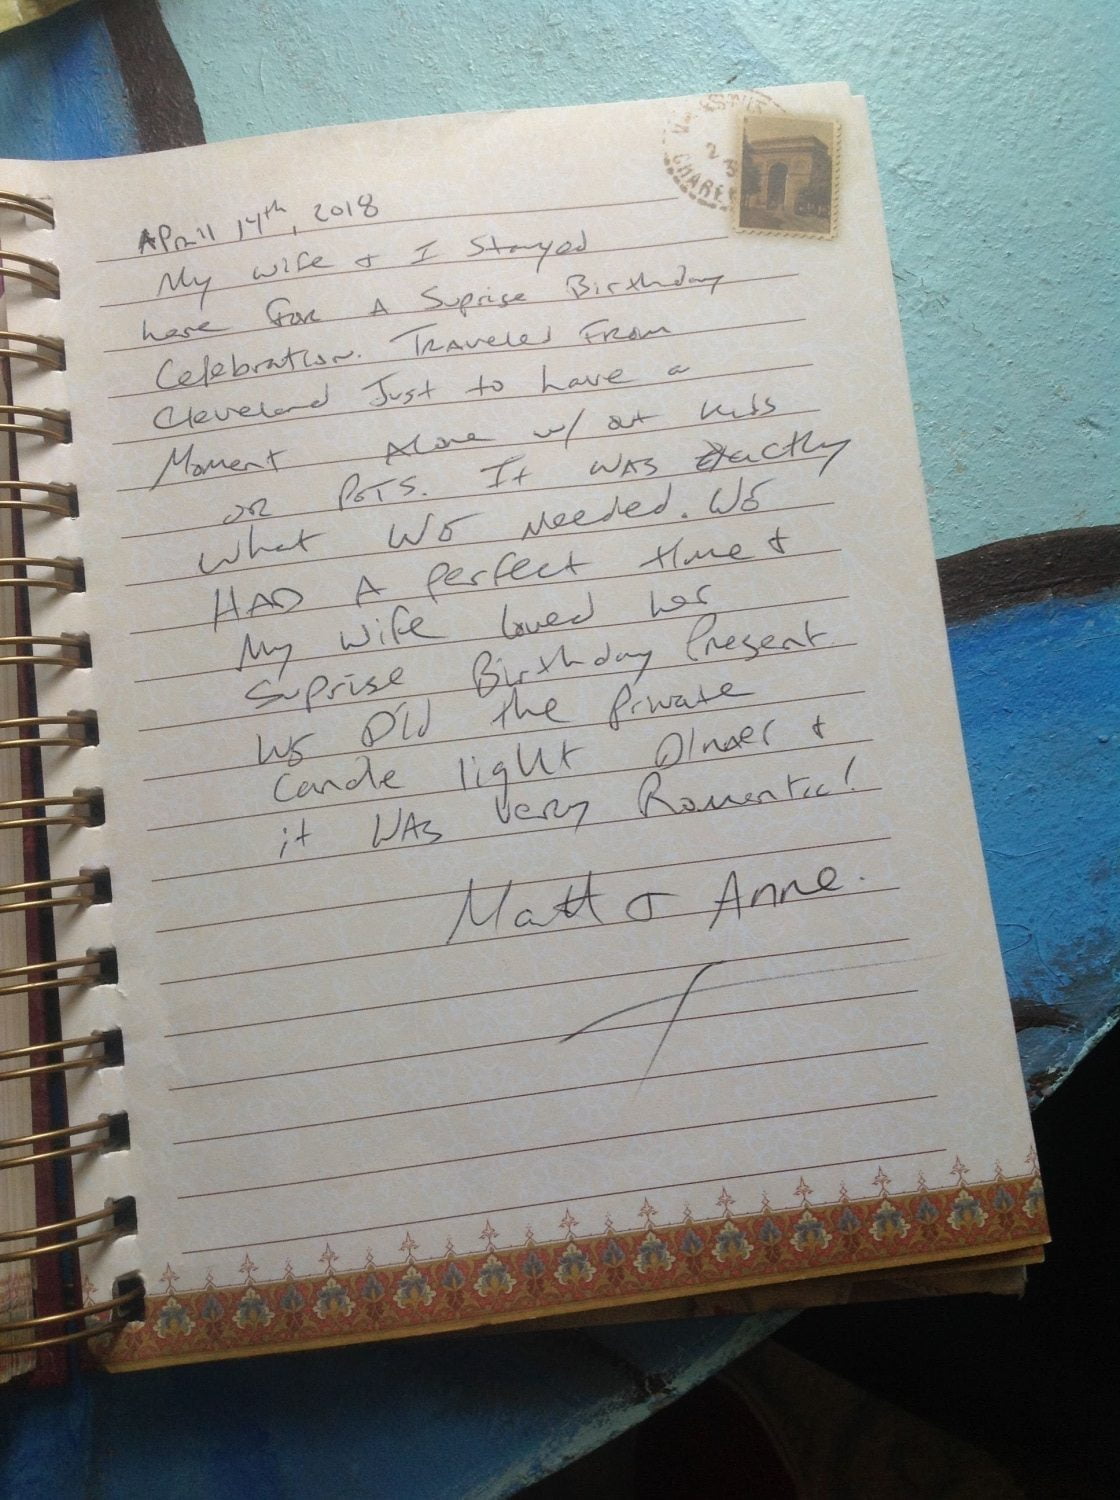 April 14th, 2018
My wife & I Stayed
here for A Suprise Birthday
Celebration. Traveled From
Cleveland Just to have a
Moment Alone w/ out kids
or Pets. It WAS Exactly
what We Needed. We
HAD A perfect time &
My wife loved her
Suprise Birthday Present
We Did the Private
Candle light Dinner &
it WAS very Romantic!
Matt & Anne.
23